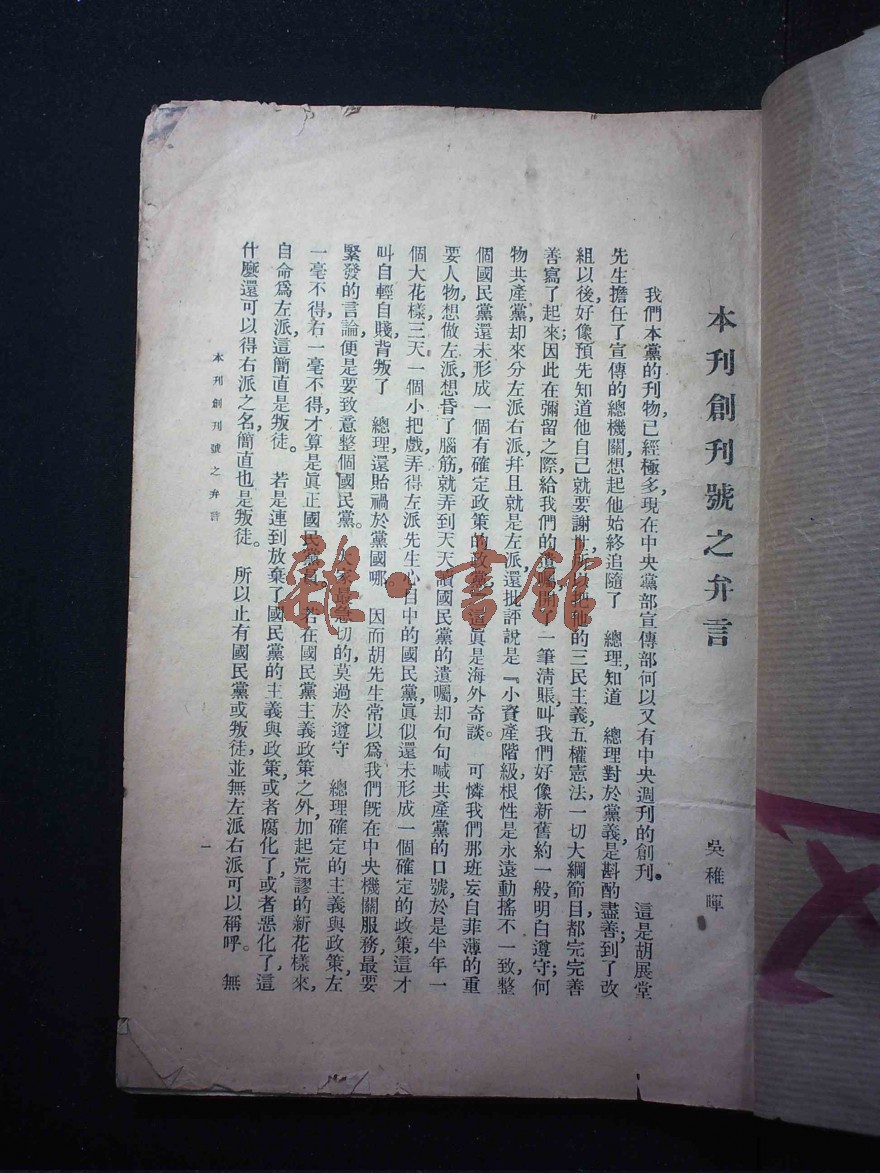 本刊創刊號之弁言
吳稚暉
我們本黨的刊物,已經極多,現在中央黨部宣傳部何以又有中央週刊的創刊。 這是胡展堂
先生擔任了宣傳的總機關,想起他始終追隨了 總理,知道 總理對於黨義,是斟酌盡善;到了改
組以後,好像預先知道他自己就要謝世,所以把他的三民主義五權憲法一切大綱節目,都完完善
善寫了起來;因此在彌留之際,給我們的遺囑,開了一筆清賬,叫我們好像新舊約一般,明白遵守;何
物共產黨,却來分左派右派,幷且就是左派,還批評說是『小資產階級根性是永遠動搖不一致,整
個國民黨還未形成一個有確定政策的政黨』,這眞是海外奇談。 可憐我們那班妄自菲薄的重
要人物,想做左派,想昏了腦筋,就弄到天天讀國民黨的遺囑,却句句喊共產黨的口號,於是半年一
個大花樣,三天一個小把戲,弄得左派先生心目中的國民黨,眞似還未形成一個確定的政策,這才
叫自輕自賤,背叛了 總理,還貽禍於黨國哪。 因而胡先生常以爲我們旣在中央機關服務,最要
緊發的言論,便是要致意整個國民黨。 大家最急切的,莫過於遵守 總理確定的主義與政策,左
一毫不得,右一毫不得,才算是眞正國民黨員。 若在國民黨主義政策之外,加起荒謬的新花樣來,
自命爲左派,這簡直是叛徒。 若是連到放棄了國民黨的主義與政策,或者腐化了,或者惡化了,這
什麼還可以得右派之名,簡直也是叛徒。 所以止有國民黨或叛徒,並無左派右派可以稱呼。 無
本刊創刊號之弁言
一
雜·書館